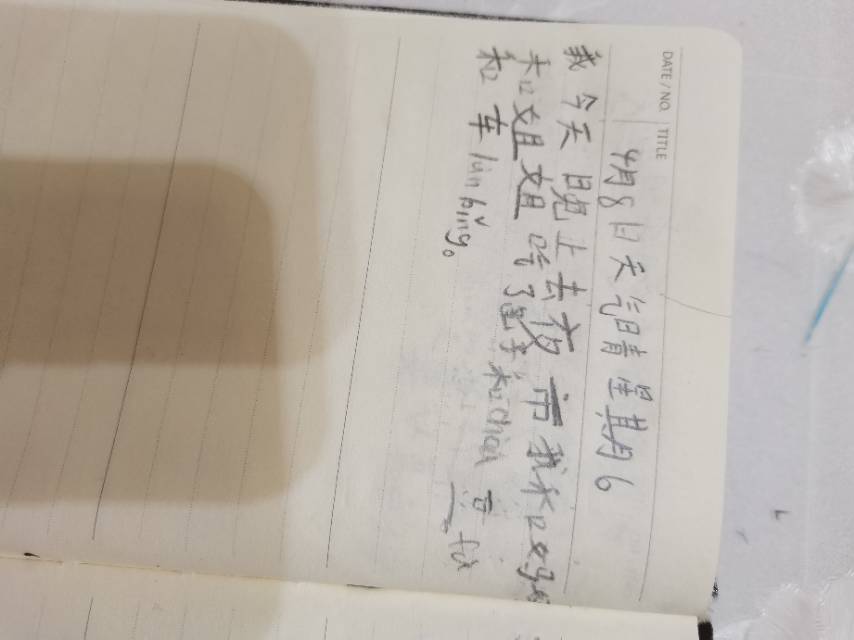 DATE / NO. TITLE
4月8日天气晴星期6
我今天晚上去夜市我和妈
和姐姐吃了包子和chòu豆fu
和车lún bǐng。